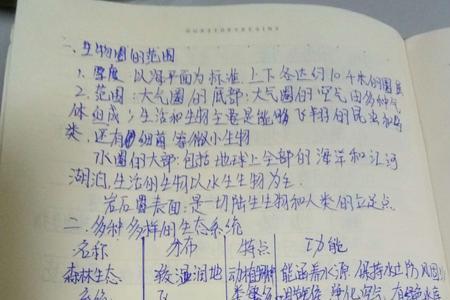 一、生物圈的范围
1. 厚度：以海平面为标准上下各达约10千米的圈层
2. 范围：大气圈的底部：大气圈的空气由多种气
体组成；生活的生物主要是能够飞翔的昆虫和鸟
类，还有细菌等微小生物
水圈的大部：包括地球上全部的海洋和江河
湖泊，生活的生物以水生生物为主
岩石圈表面：是一切陆生生物和人类的立足点
二、多种多样的生态系统
名称 分布 特点 功能
森林生态 较湿润地 动植物种 能涵养水源，保持水土防风固
系统 区 类繁多 净化空气